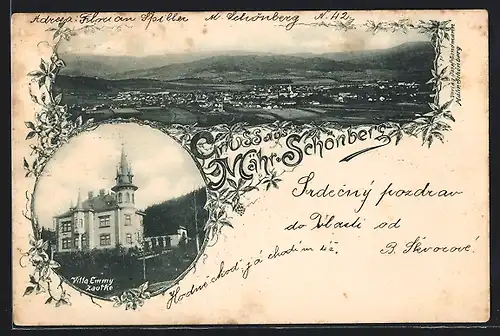 Adresa: Florian Spiller M. Schönberg N. 42.
Gruss aus
Mähr-Schönberg
Srdečný pozdrav
do Vlasti od
B. Škvorové
Hodně choď já chodím též.
Villa Emmy
Zautke